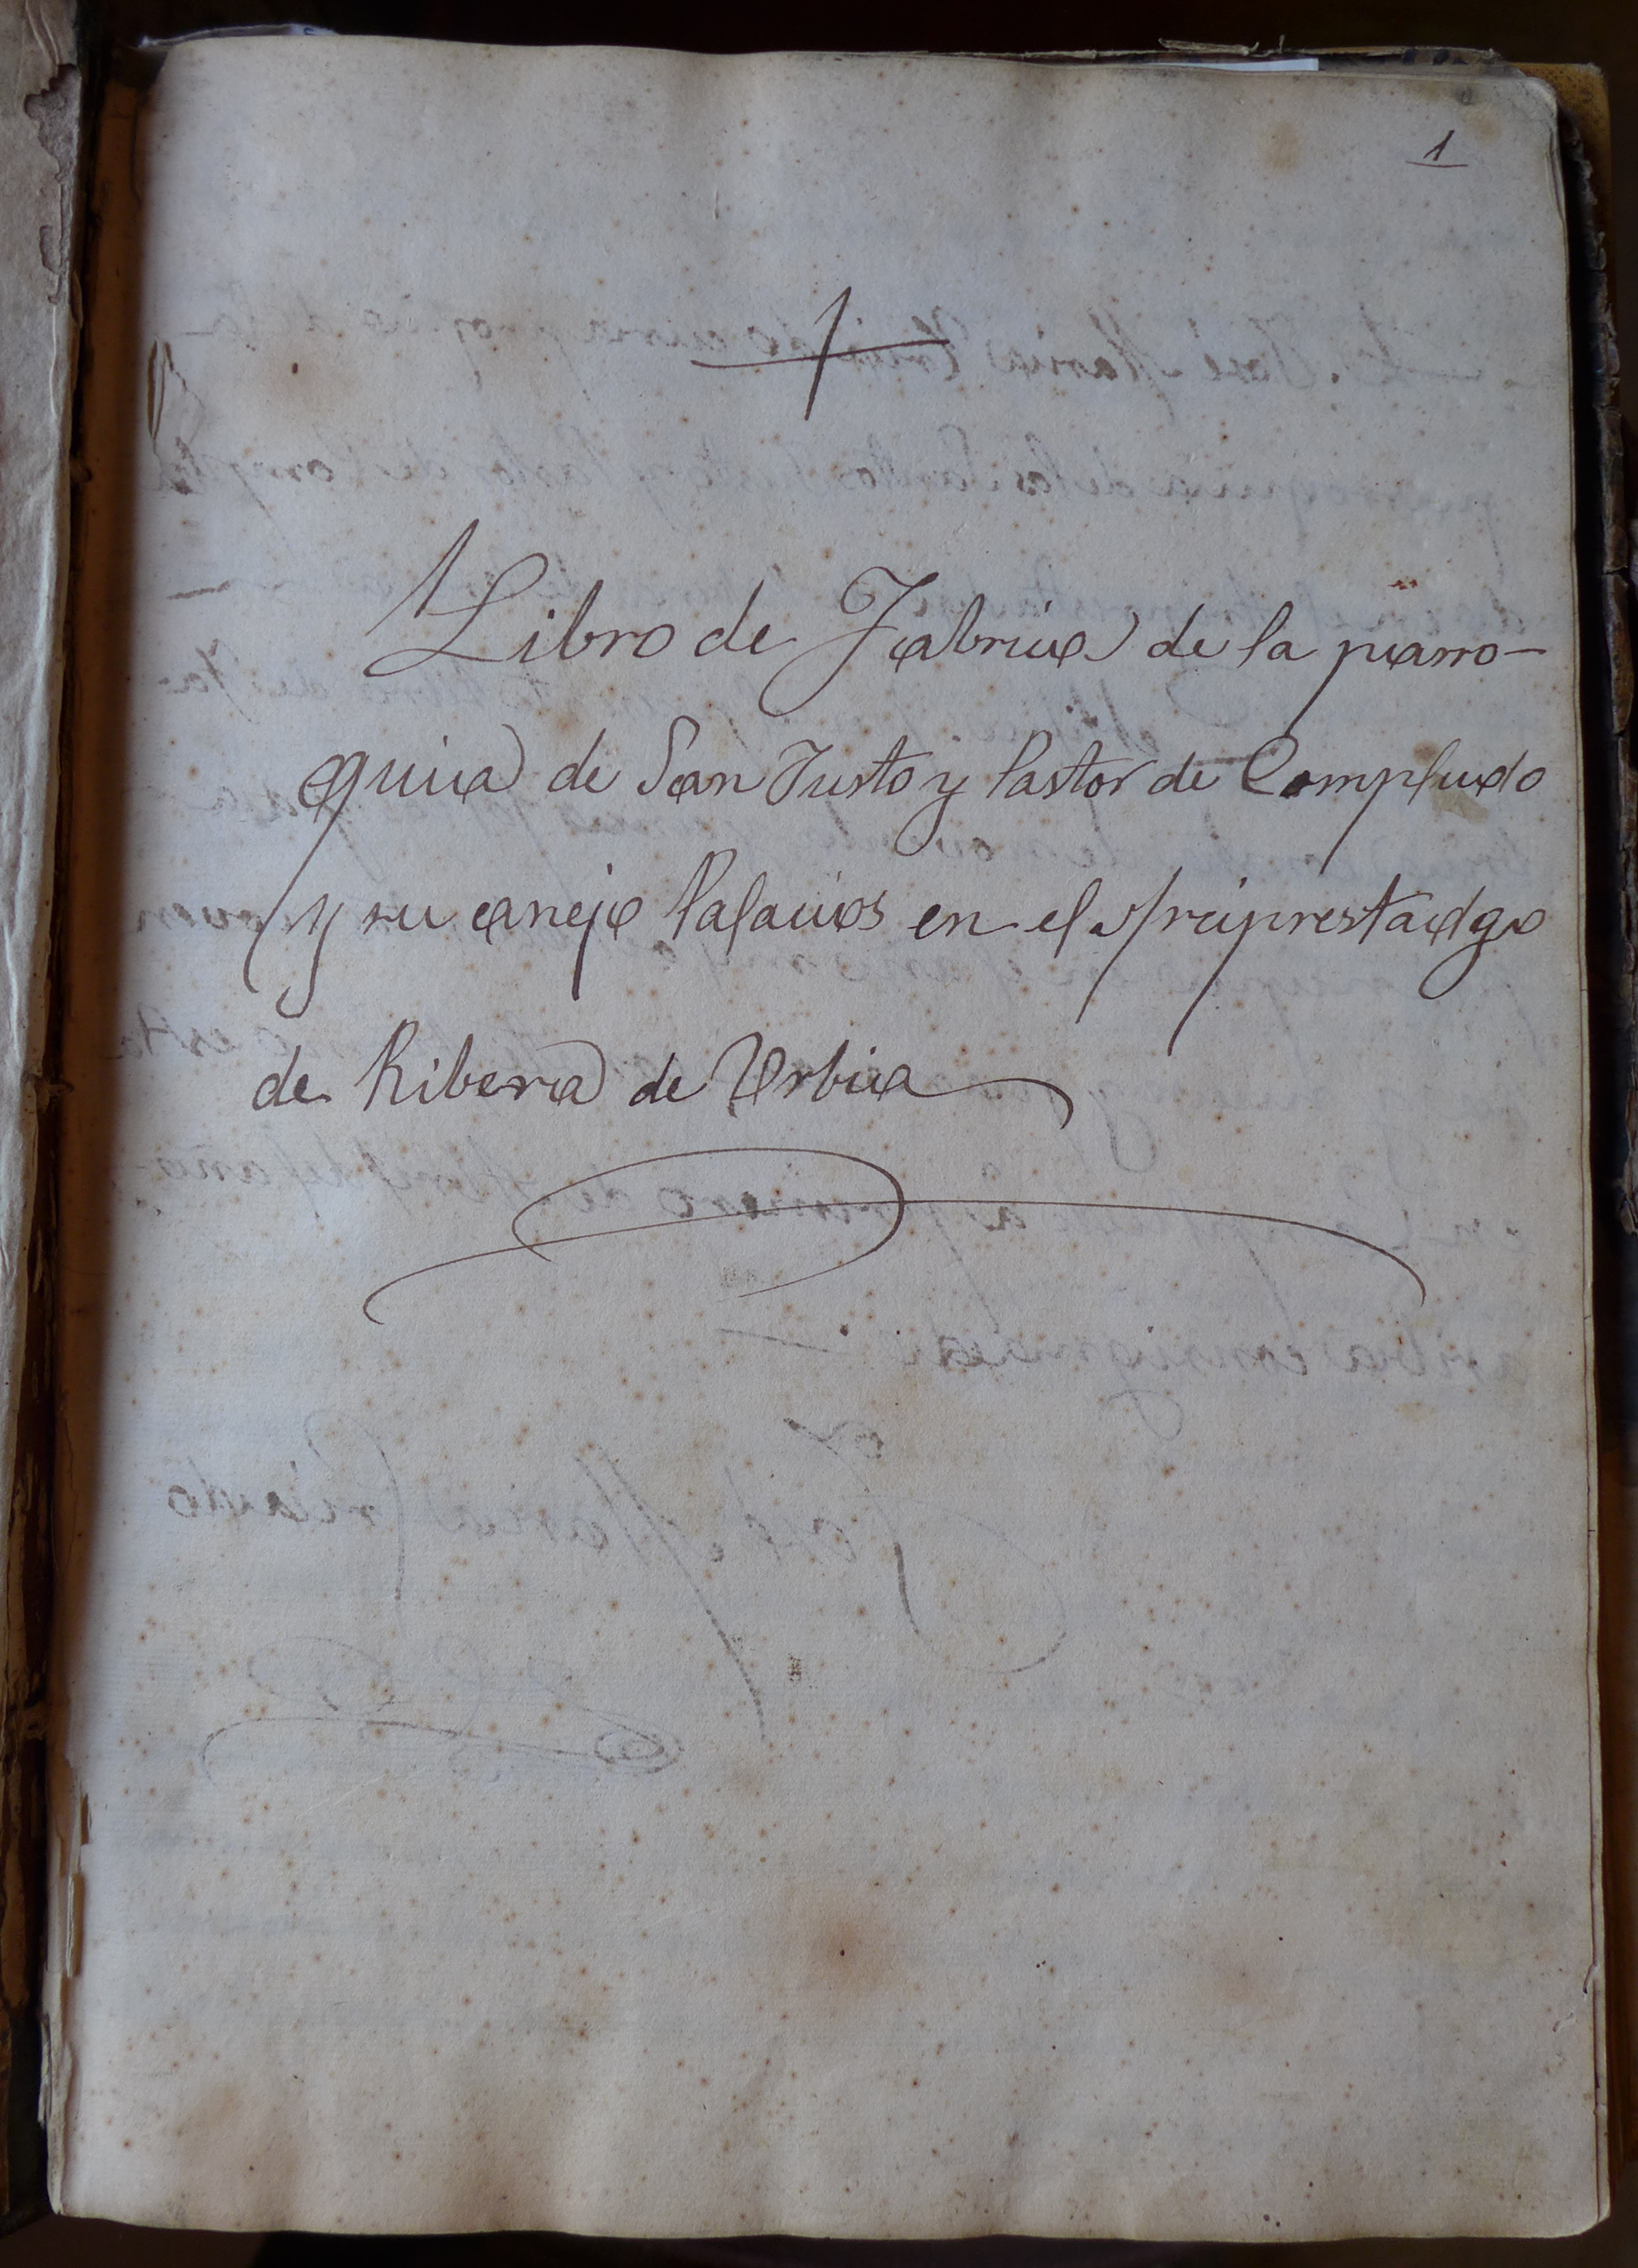 1
Libro de Fabrica de la parro-
quia de San Justo y Pastor de Compludo
y su anejo Palacios en el Arciprestadgo
de Ribera de Urbia